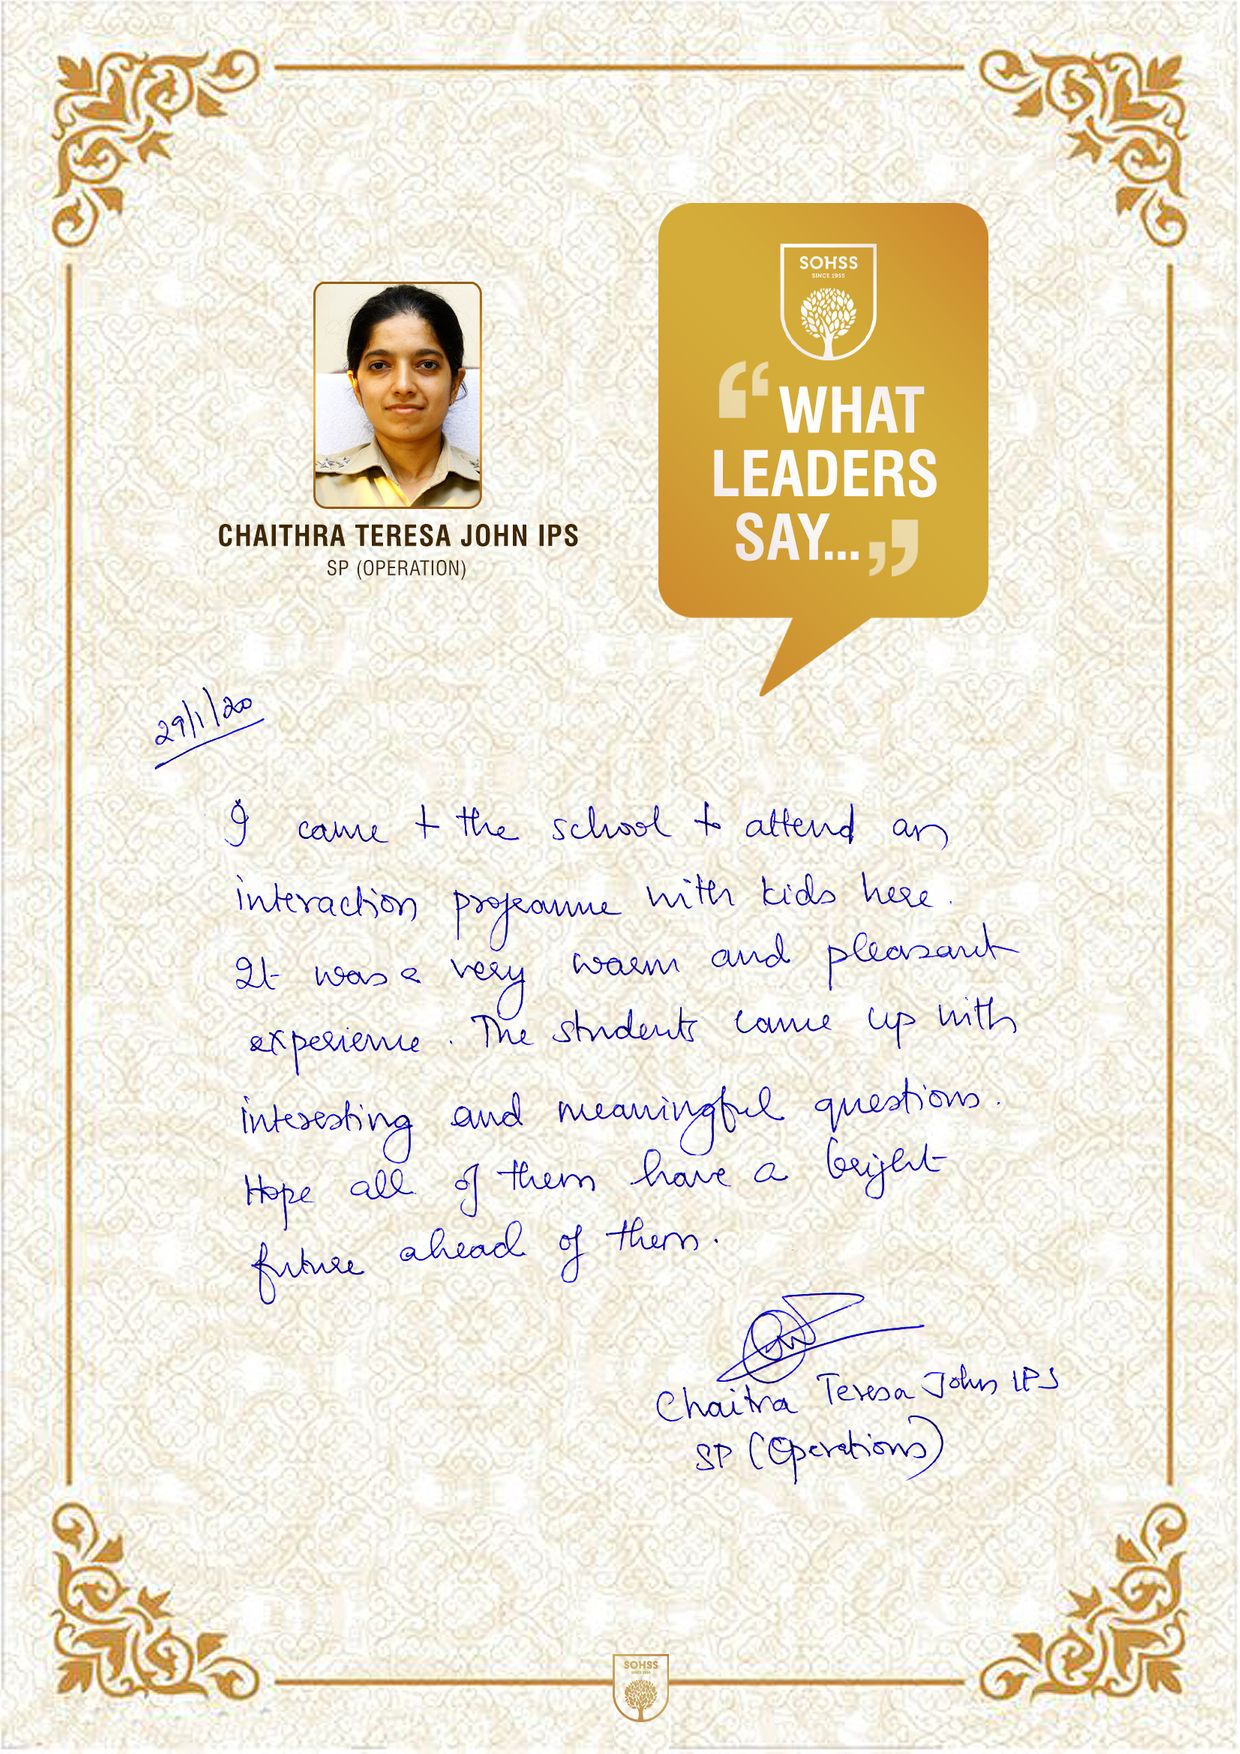 SOHSS
SINCE 1955
“WHAT
LEADERS
SAY...”
CHAITHRA TERESA JOHN IPS
SP (OPERATION)
29/1/20
I came to the school to attend an
interaction programme with kids here.
It was a very warm and pleasant
experience. The students came up with
interesting and meaningful questions.
Hope all of them have a bright
future ahead of them.
Chaitra Teresa John IPS
SP (Operations)
SOHSS
SINCE 1955